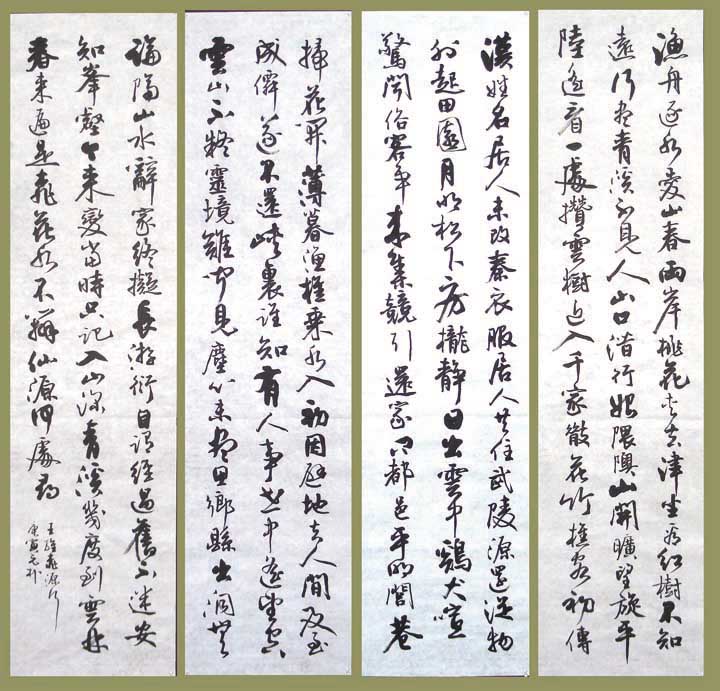 漁舟逐水愛山春兩岸桃花夾去津坐看紅樹不知
遠行盡青溪不見人山口潛行始隈隩山開曠望旋平
陸遙看一處攢雲樹近入千家散花竹樵客初傳
漢姓名居人未改秦衣服居人共住武陵源還從物
外起田園月明松下房櫳靜日出雲中鷄犬喧
驚聞俗客爭來集競引還家問都邑平明閭巷
掃花開薄暮漁樵乘水入初因避地去人間及至
成僊遂不還峽裏誰知有人事世中遙望空
雲山不疑靈境難聞見塵心未盡思鄉縣出洞無
論隔山水辭家終擬長游衍自謂經過舊不迷安
知峯壑今來變當時只記入山深青溪幾度到雲林
春來遍是桃花水不辨仙源何處尋
王維桃源行
庚寅元